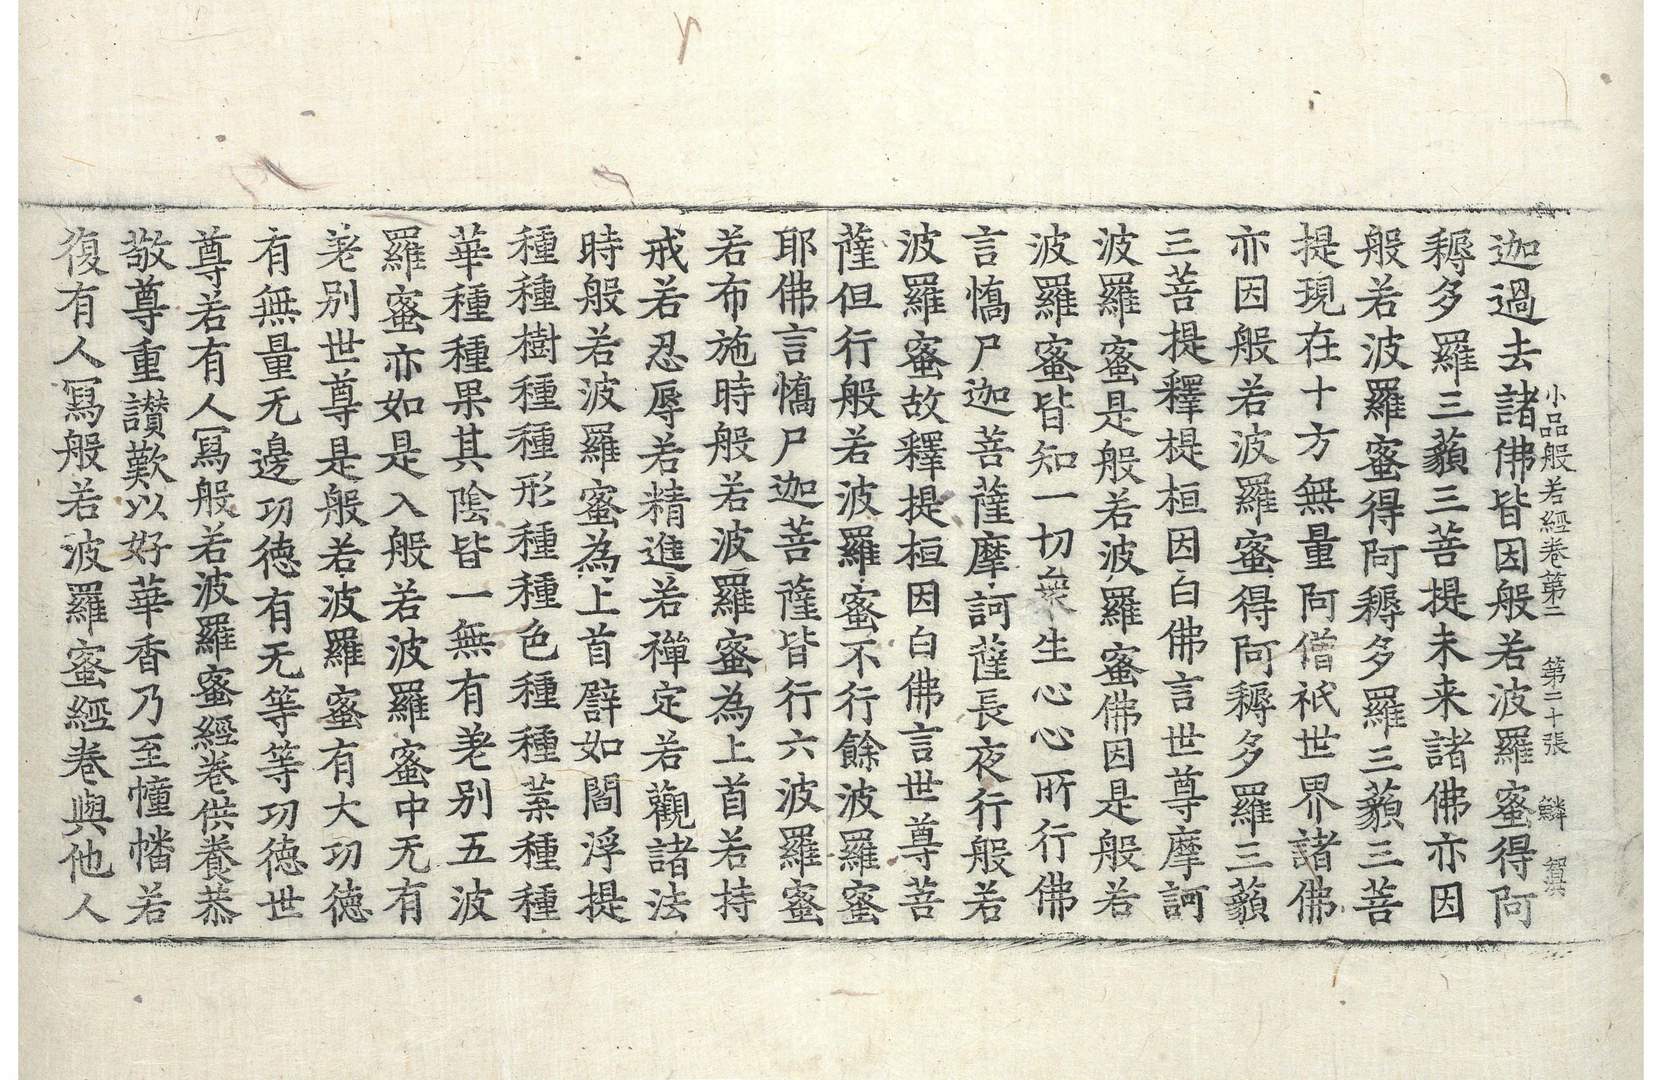 小品般若經卷第二 第二十張 鱗
迦過去諸佛皆因般若波羅蜜得阿
耨多羅三藐三菩提未来諸佛亦因
般若波羅蜜得阿耨多羅三藐三菩
提現在十方無量阿僧祇世界諸佛
亦因般若波羅蜜得阿耨多羅三藐
三菩提釋提桓因白佛言世尊摩訶
波羅蜜是般若波羅蜜佛因是般若
波羅蜜皆知一切衆生心心所行佛
言憍尸迦菩薩摩訶薩長夜行般若
波羅蜜故釋提桓因白佛言世尊菩
薩但行般若波羅蜜不行餘波羅蜜
耶佛言憍尸迦菩薩皆行六波羅蜜
若布施時般若波羅蜜為上首若持
戒若忍辱若精進若禪定若觀諸法
時般若波羅蜜為上首譬如閻浮提
種種樹種種形種種色種種葉種種
華種種果其陰皆一無有差別五波
羅蜜亦如是入般若波羅蜜中无有
差別世尊是般若波羅蜜有大功德
有無量无邊功德有无等等功德世
尊若有人寫般若波羅蜜經卷供養恭
敬尊重讃歎以好華香乃至幢幡若
復有人寫般若波羅蜜經卷與他人